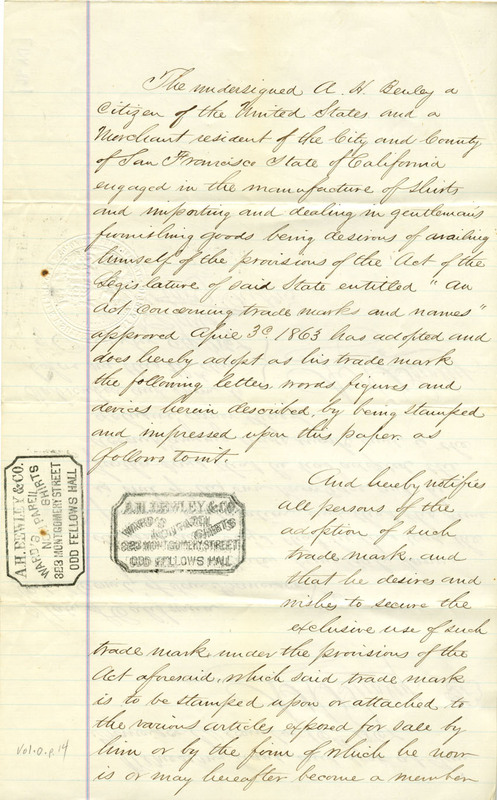 The undersigned A. H. Bewley a
Citizen of the United States and a
Merchant resident of the City and County
of San Francisco State of California
engaged in the manufacture of Shirts
and importing and dealing in gentleman's
furnishing goods being desirous of availing
himself of the provisions of the Act of the
Legislature of said State entitled "An
Act concerning trade marks and names"
approved April 3d 1863 has adopted and
does hereby adopt as his trade mark
the following letters words figures and
devices herein described, by being stamped
and impressed upon this paper as
follows towit.
A.H. BEWLEY & CO.
WARD'S PAREIL
NON SHIRTS
323 MONTGOMERY STREET
ODD FELLOWS HALL
A.H. BEWLEY & CO
WARD'S PAREIL
SHIRTS
323 MONTGOMERY STREET
ODD FELLOWS HALL
And hereby notifies
all persons of the
adoption of such
trade mark and
that he desires and
wishes to secure the
exclusive use of such
trade mark under the provisions of the
Act aforesaid, which said trade mark
is to be stamped upon or attached to
the various articles exposed for sale by
him or by the firm of which he now
is or may hereafter become a member
Vol. O. p. 14